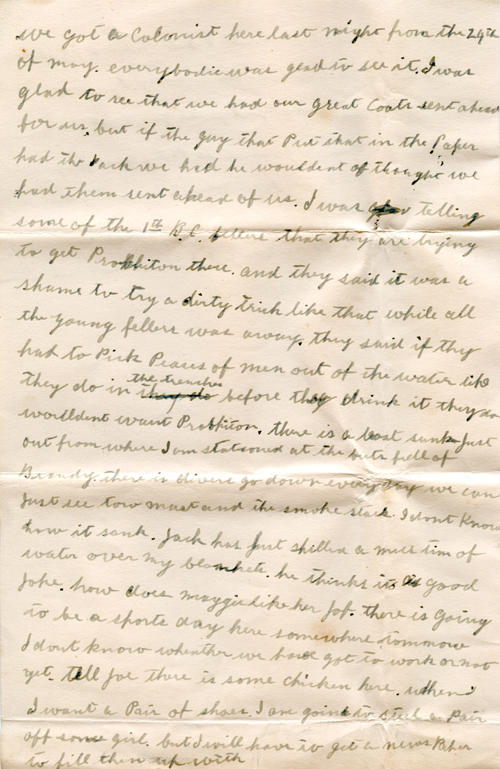 we got a Colonist here last night from the 24th
of may. everybodie was glad to see it. I was
glad to see that we had our great Coats sent ahead
for us, but if the guy that Put that in the Paper
had the Pack we had he wouldent of thought we
had them sent ahead of us. I was telling
some of the 1st B.C. fellers that they are trying
to get Probhiton there. and they said it was a
shame to try a dirty trick like that while all
the young fellers was away. they said if they
had to Pick Peaces of men out of the water like
they do in the trenches before they drink it they
woulddent want Probhiton. there is a boat sunk Just
out from where I am stationed at the huts full of
Brandy. there is divers go down every day we can
Just see tow mast and the smoke stack I dont Know
how it sank. Jack has Just spilled a mess tin of
water over my blankets. he thinks it is a good
Joke. how does mayzie like her Job. there is Going
to be a sports day here somewhere tommorow
I dont know whenther we have got to work or not
yet. tell Joe there is some chicken here. when
I want a Pair of shoes. I am going to steal a Pair
off some girl. but I will have to get a news Paper
to fill them up with